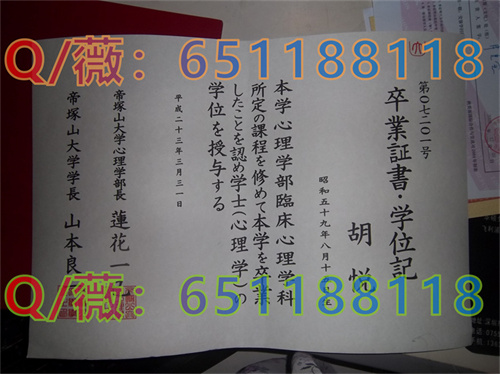 Q/薇：651188118
第〇七二〇一号
卒業証書・学位記
胡悦
昭和五十九年八月十
本学心理学部臨床心理学科
所定の課程を修めて本学を卒業
したことを認め学士(心理学)の
学位を授与する
平成二十三年三月三一日
帝塚山大学心理学部長 蓮花一
帝塚山大学学長 山本良
Q/薇：651188118